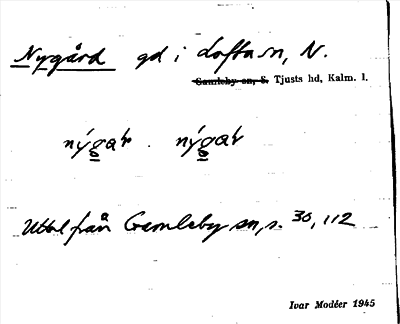 Nygård gd i Lofta sn, N.
Gamleby sn, S. Tjusts hd, Kalm. l.
nýgar. nýgar
Uttal från Gamleby sn, s. 30, 112
Ivar Modéer 1945